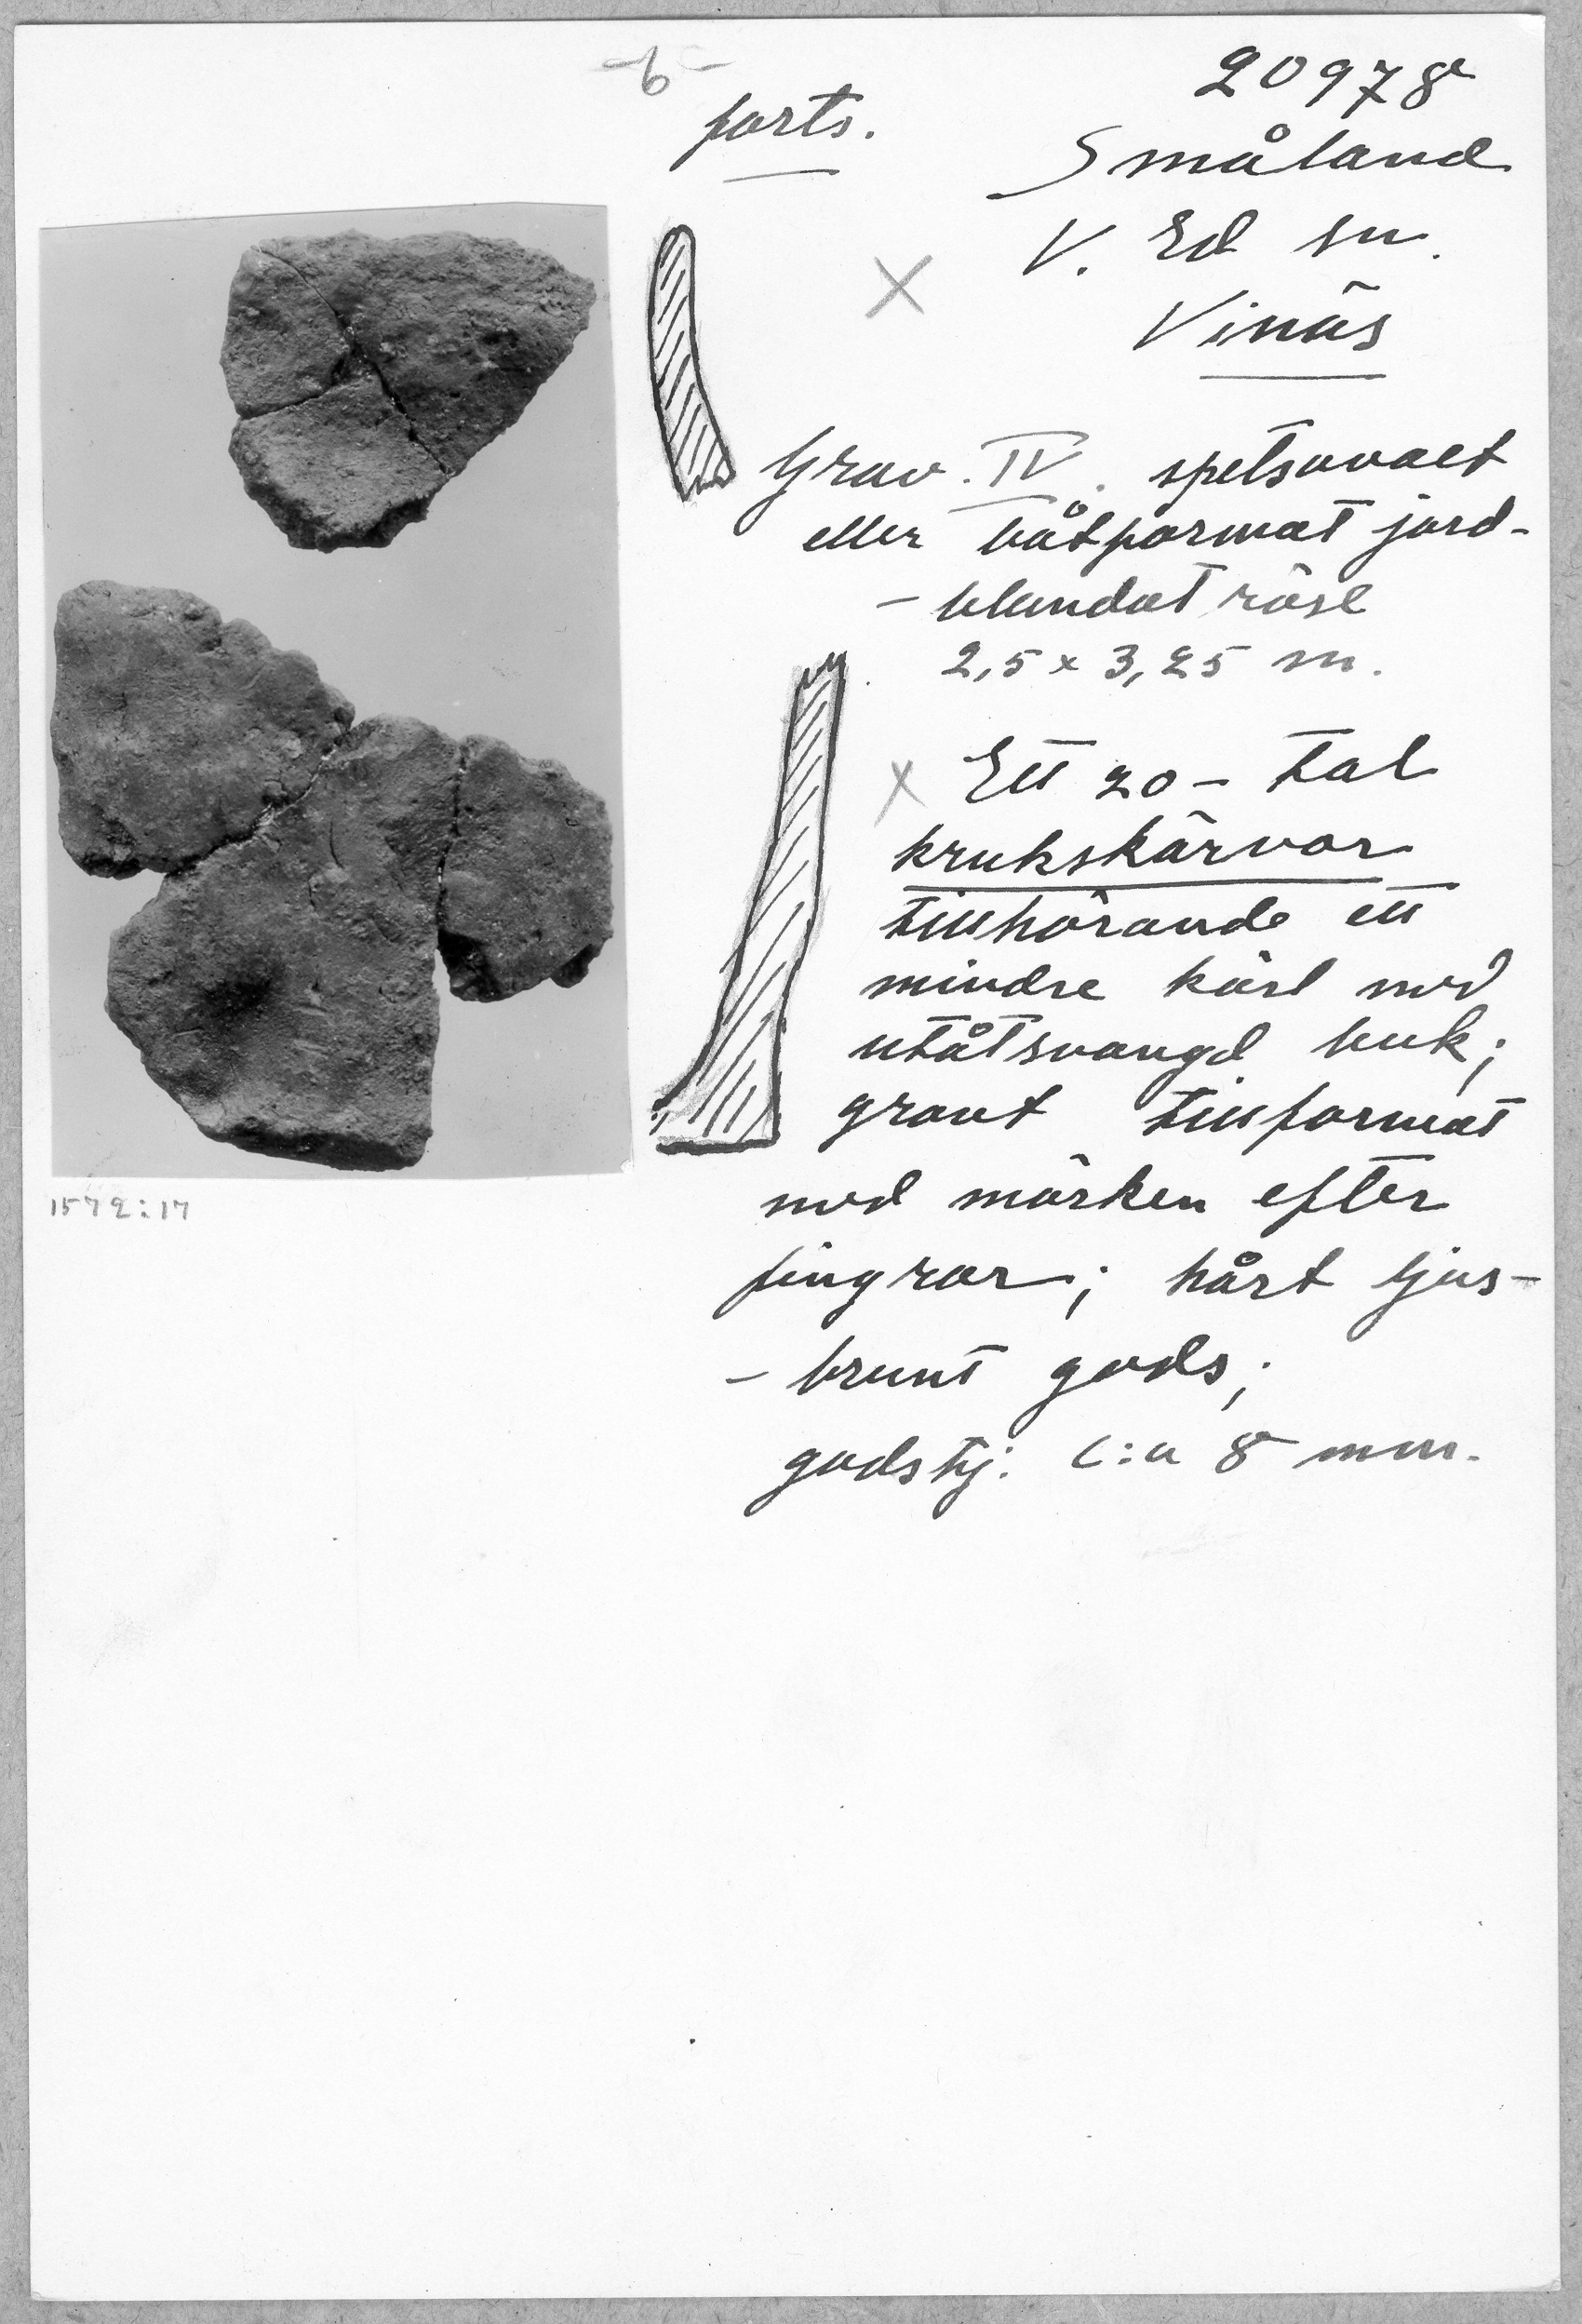 -6-
forts.
20978
Småland
V. Ed sn.
Vinäs
Grav. IV. spetsovalt
eller båtformat jord-
- blandat röse
2,5 x 3,25 m.
x Ett 20-tal
krukskärvor
tillhörande ett
mindre kärl med
utåtsvängd buk;
grovt tillformat
med märken efter
fingrar; hårt ljus-
- brunt gods;
godstj. c:a 8 mm.
1572:17